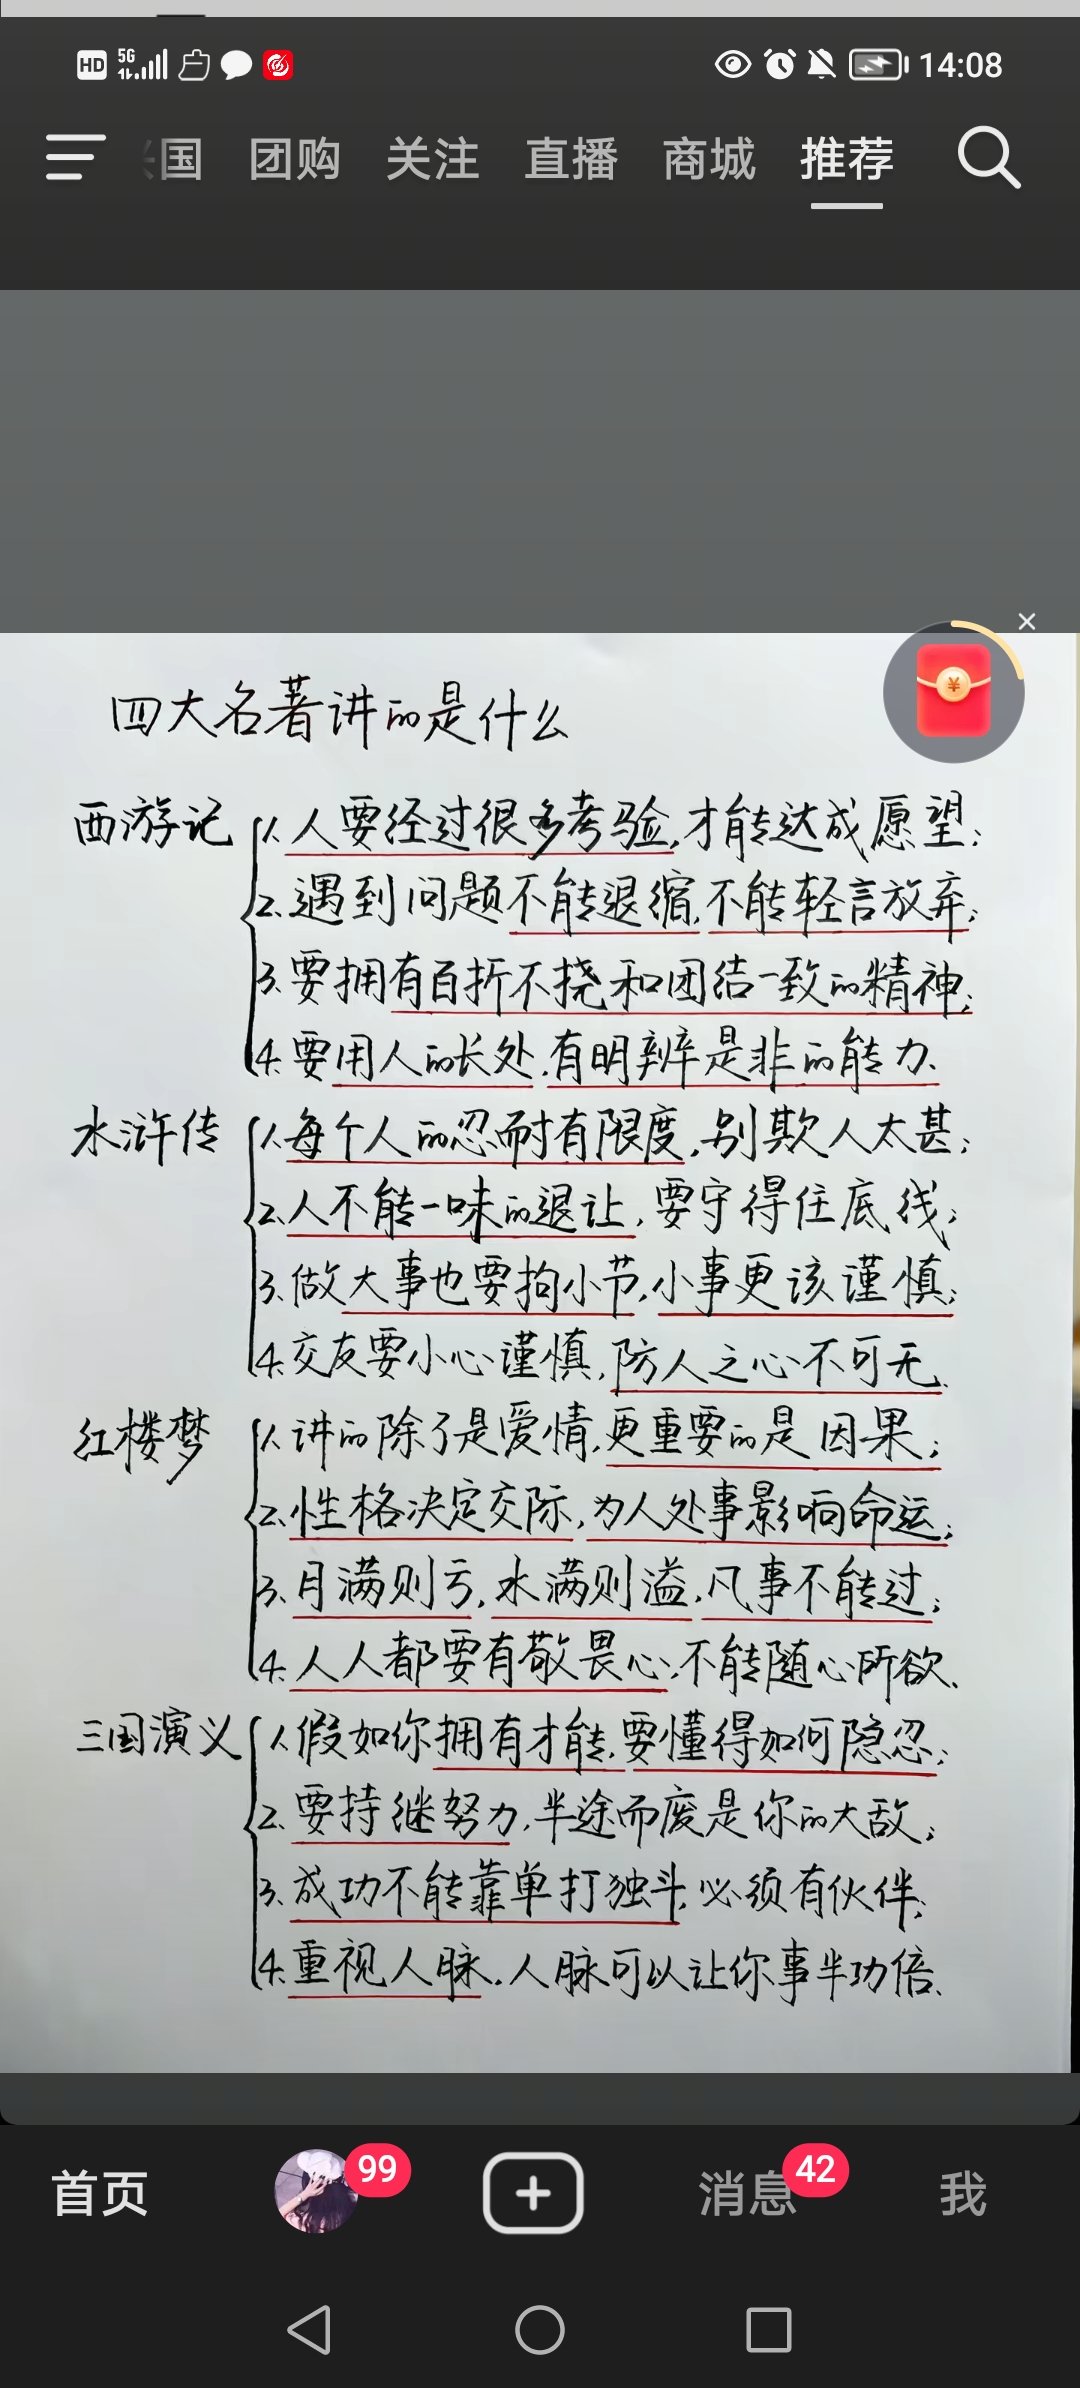 HD 5G 14:08
国 团购 关注 直播 商城 推荐
¥
四大名著讲的是什么
西游记 1.人要经过很多考验,才能达成愿望;
2.遇到问题不能退缩,不能轻言放弃;
3.要拥有百折不挠和团结一致的精神;
4.要用人的长处,有明辨是非的能力.
水浒传 1.每个人的忍耐有限度,别欺人太甚;
2.人不能一味的退让,要守得住底线;
3.做大事也要拘小节,小事更该谨慎;
4.交友要小心谨慎,防人之心不可无.
红楼梦 1.讲的除了是爱情,更重要的是因果;
2.性格决定交际,为人处事影响命运;
3.月满则亏,水满则溢,凡事不能过;
4.人人都要有敬畏心,不能随心所欲.
三国演义 1.假如你拥有才能,要懂得如何隐忍;
2.要持继努力,半途而废是你的大敌;
3.成功不能靠单打独斗,必须有伙伴;
4.重视人脉,人脉可以让你事半功倍.
首页 99 消息 42 我